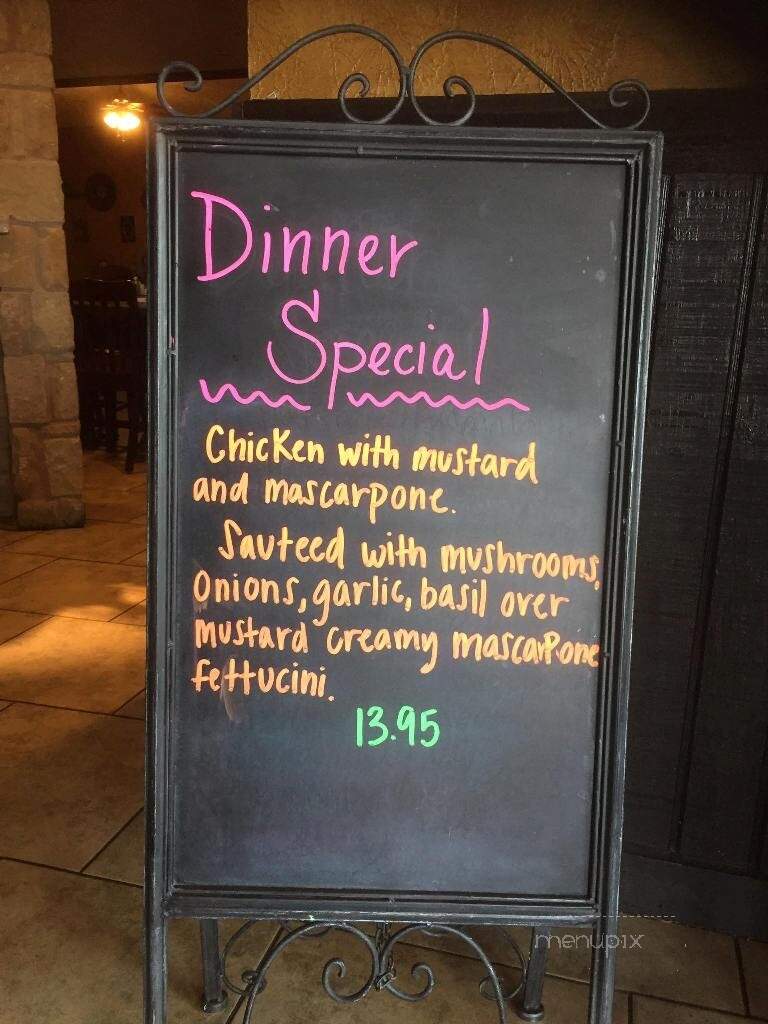 Dinner
Special
Chicken with mustard
and mascarpone.
Sauteed with mushrooms,
Onions, garlic, basil over
mustard creamy mascarpone
fettucini.
13.95
menupix